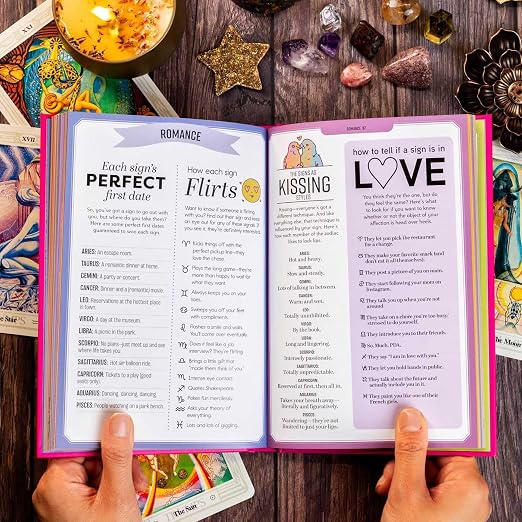 ROMANCE
Each sign's
PERFECT
first date
So, you've got a sign to go out with,
but where do you take them?
Here are some perfect first dates
guaranteed to woo each sign.
ARIES: An escape room.
TAURUS: A romantic dinner at home.
GEMINI: A party or concert.
CANCER: Dinner and a (romantic) movie.
LEO: Reservations at the hottest place
in town.
VIRGO: A day at the museum.
LIBRA: A picnic in the park.
SCORPIO: No plans—just meet up and see
where life takes you.
SAGITTARIUS: Hot air balloon ride.
CAPRICORN: Tickets to a play (good
seats only).
AQUARIUS: Dancing, dancing, dancing.
PISCES: People watching on a park bench.
How each sign
Flirts
Want to know if someone is flirting
with you? Find out their sign and keep
an eye out for any of these signs. If
you see it, they're definitely interested.
♈ Kicks things off with the
perfect pick-up line—they
love the chase!
♉ Plays the long game—they're
more than happy to wait for
what they want.
♊ Always keeps you on your
toes.
♋ Sweeps you off your feet
with compliments.
♌ Flashes a smile and waits.
You'll come over eventually.
♍ Does it feel like a job
interview? They're flirting!
♎ Brings a little gift that
"made them think of you."
♏ Intense eye contact
♐ Quotes Shakespeare.
♑ Pokes fun mercilessly.
♒ Asks your theory of
everything.
♓ Lots and lots of giggling.
ROMANCE 97
THE SIGNS AS
KISSING
STYLES
Kissing—everyone's got a
different technique. And like
everything else, that technique
is influenced by your sign. Here's
how each member of the zodiac
likes to lock lips.
ARIES
Hot and heavy.
TAURUS
Slow and steady.
GEMINI
Lots of talking in between.
CANCER
Warm and wet.
LEO
Totally uninhibited.
VIRGO
By the book.
LIBRA
Long and lingering.
SCORPIO
Intensely passionate.
SAGITTARIUS
Totally unpredictable.
CAPRICORN
Reserved at first, then all in.
AQUARIUS
Takes your breath away—
literally and figuratively.
PISCES
Wandering—they're not
limited to just your lips.
how to tell if a sign is in
LOVE
You think they're the one, but do
they feel the same? Here's what
to look for if you want to know
whether or not the object of your
affection is head over heels.
♈ They let you pick the restaurant
for a change.
♉ They make your favorite snack (and
don't eat it all themselves).
♊ They post a picture of you on main.
♋ They start following your mom on
Instagram.
♌ They talk you up when you're not
around.
♍ They take on a chore you're too busy/
stressed to do yourself.
♎ They introduce you to their friends.
♏ So. Much. PDA.
♐ They say "I am in love with you."
♑ They let you hold hands in public.
♒ They talk about the future and
actually include you in it.
♓ They paint you like one of their
French girls.
XVII
The Star
The Sun
The Moon